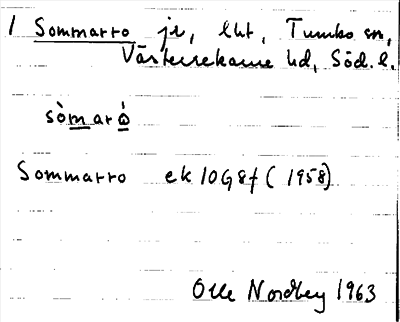 1 Sommarro jr, lht, Tumbo sn,
Västerrekarne hd, Söd. l.
sòmaró
Sommarro ek 10G8f (1958)
Olle Nordberg 1963